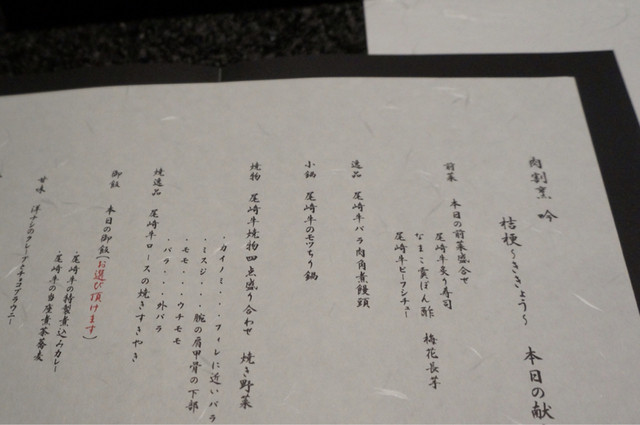 肉割烹 吟
桔梗～ききょう～ 本日の献
前菜 本日の前菜盛合せ
尾崎牛炙り寿司
なまこ黄ぽん酢 梅花長芋
尾崎牛ビーフシチュー
逸品 尾崎牛バラ肉角煮饅頭
小鍋 尾崎牛のモツちり鍋
焼物 尾崎牛焼物四点盛り合わせ 焼き野菜
・カイノミ・・・フィレに近いバラ
・ミスジ・・・腕の肩甲骨の下部
・モモ・・・ウチモモ
・バラ・・・外バラ
焼逸品 尾崎牛ロースの焼きすきやき
御飯 本日の御飯(お選び頂けます)
・尾崎牛の特製煮込みカレー
・尾崎牛の当座煮茶蕎麦
甘味 洋ナシのクレープとチョコブラウニー